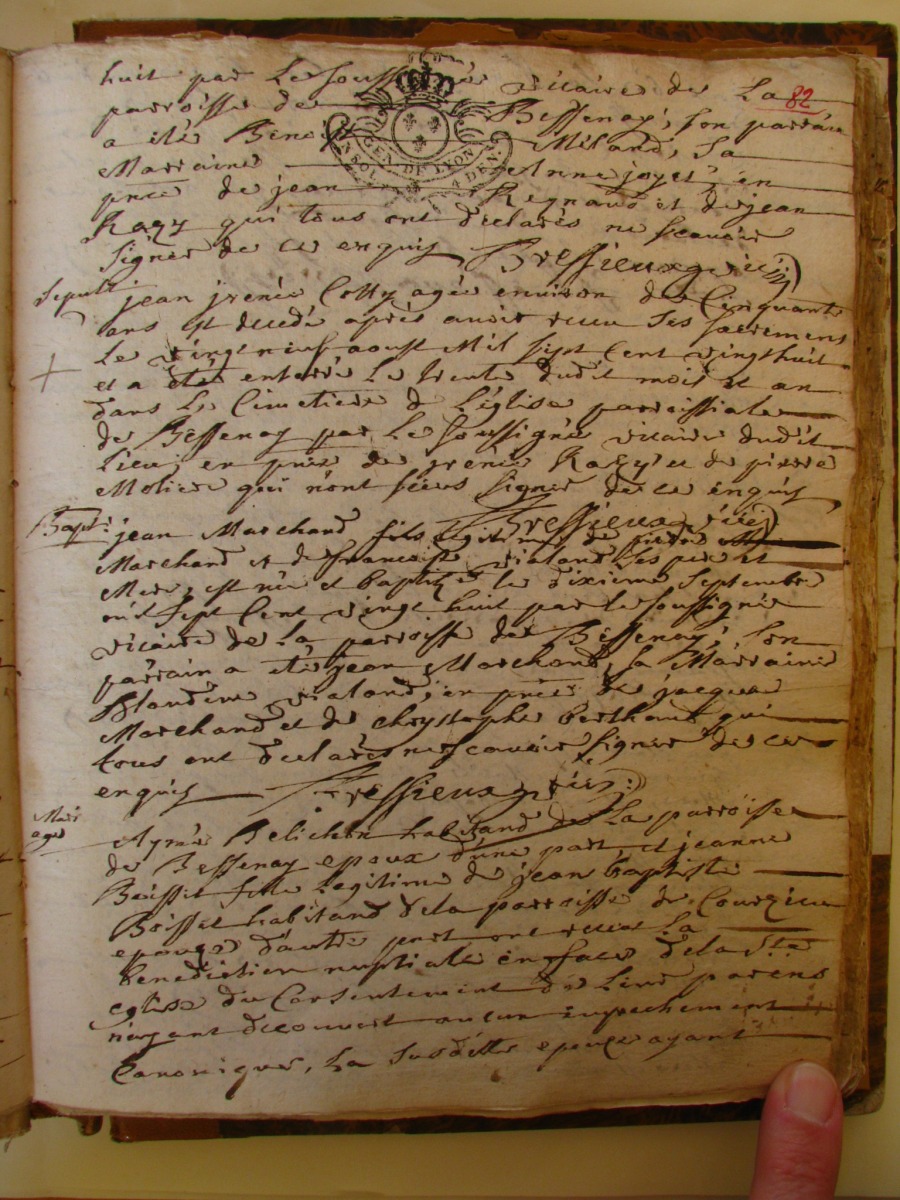 82
huit par Le soussigné vicaire de La
parroisse de Bessenay, son parrain
a été Benoit Miland, Sa
Marraine Anne joyet, en
pnce de jean Regnaud et de jean
Ragy qui tous ont déclarés ne scavoir
signer de ce enquis Bressieux vic:
GEN. DE LYON
4 DEN.
Sepult jean irenée Colly agée environ de Cinquante
ans est decedé après avoir receu Ses sacremens
Le vingt neuf aoust Mil sept Cent vingt huit
et a été enterré Le trente dudit mois et an
dans Le Cimetiere de L'église parroissiale
de Bessenay par Le soussigné vicaire dudit
Lieu, en pnce de irenée Ragy et de pierre
Moliere qui n'ont sceus signer de ce enquis
Bressieux vic:
Bapt: jean Marchand fils Legitime de pierre
Marchand et de francoise vialand Les pere et
Mere, est née et baptizé le dixieme Septembre
mil sept Cent vingt huit par le soussigné
vicaire de La parroisse de Bessenay, Son
parrain a été jean Marchand, sa Marraine
Blandine vialand, en pnce de jacque
Marchand et de Chrystophe berthaud qui
tous ont declarés ne scavoir signer de ce
enquis Bressieux vic:
Mari
age
Aymé Belichon habitand de La parroisse
de Bessenay epoux d'une part, et jeanne
Boissit fille Legitime de jean baptiste
Boissit habitand dela parroisse de Courzieu
epouze d'autre part ont receus La
benediction nuptiale en face dela Ste
eglise du Consentement de Leur parens
n'ayant decouvert aucun impechement
Canonique, La Susditte epouze ayant